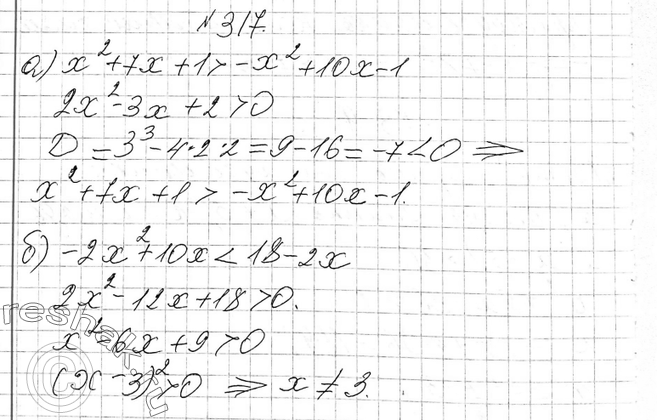 №317.
а) x²+7x+1>-x²+10x-1
2x²-3x+2>0
D=3³-4·2·2=9-16=-7<0 ⇒
x²+7x+1>-x²+10x-1.
б) -2x²+10x<18-2x
2x²-12x+18>0.
x²-6x+9>0
(x-3)²>0 ⇒ x≠3.
reshak.ru